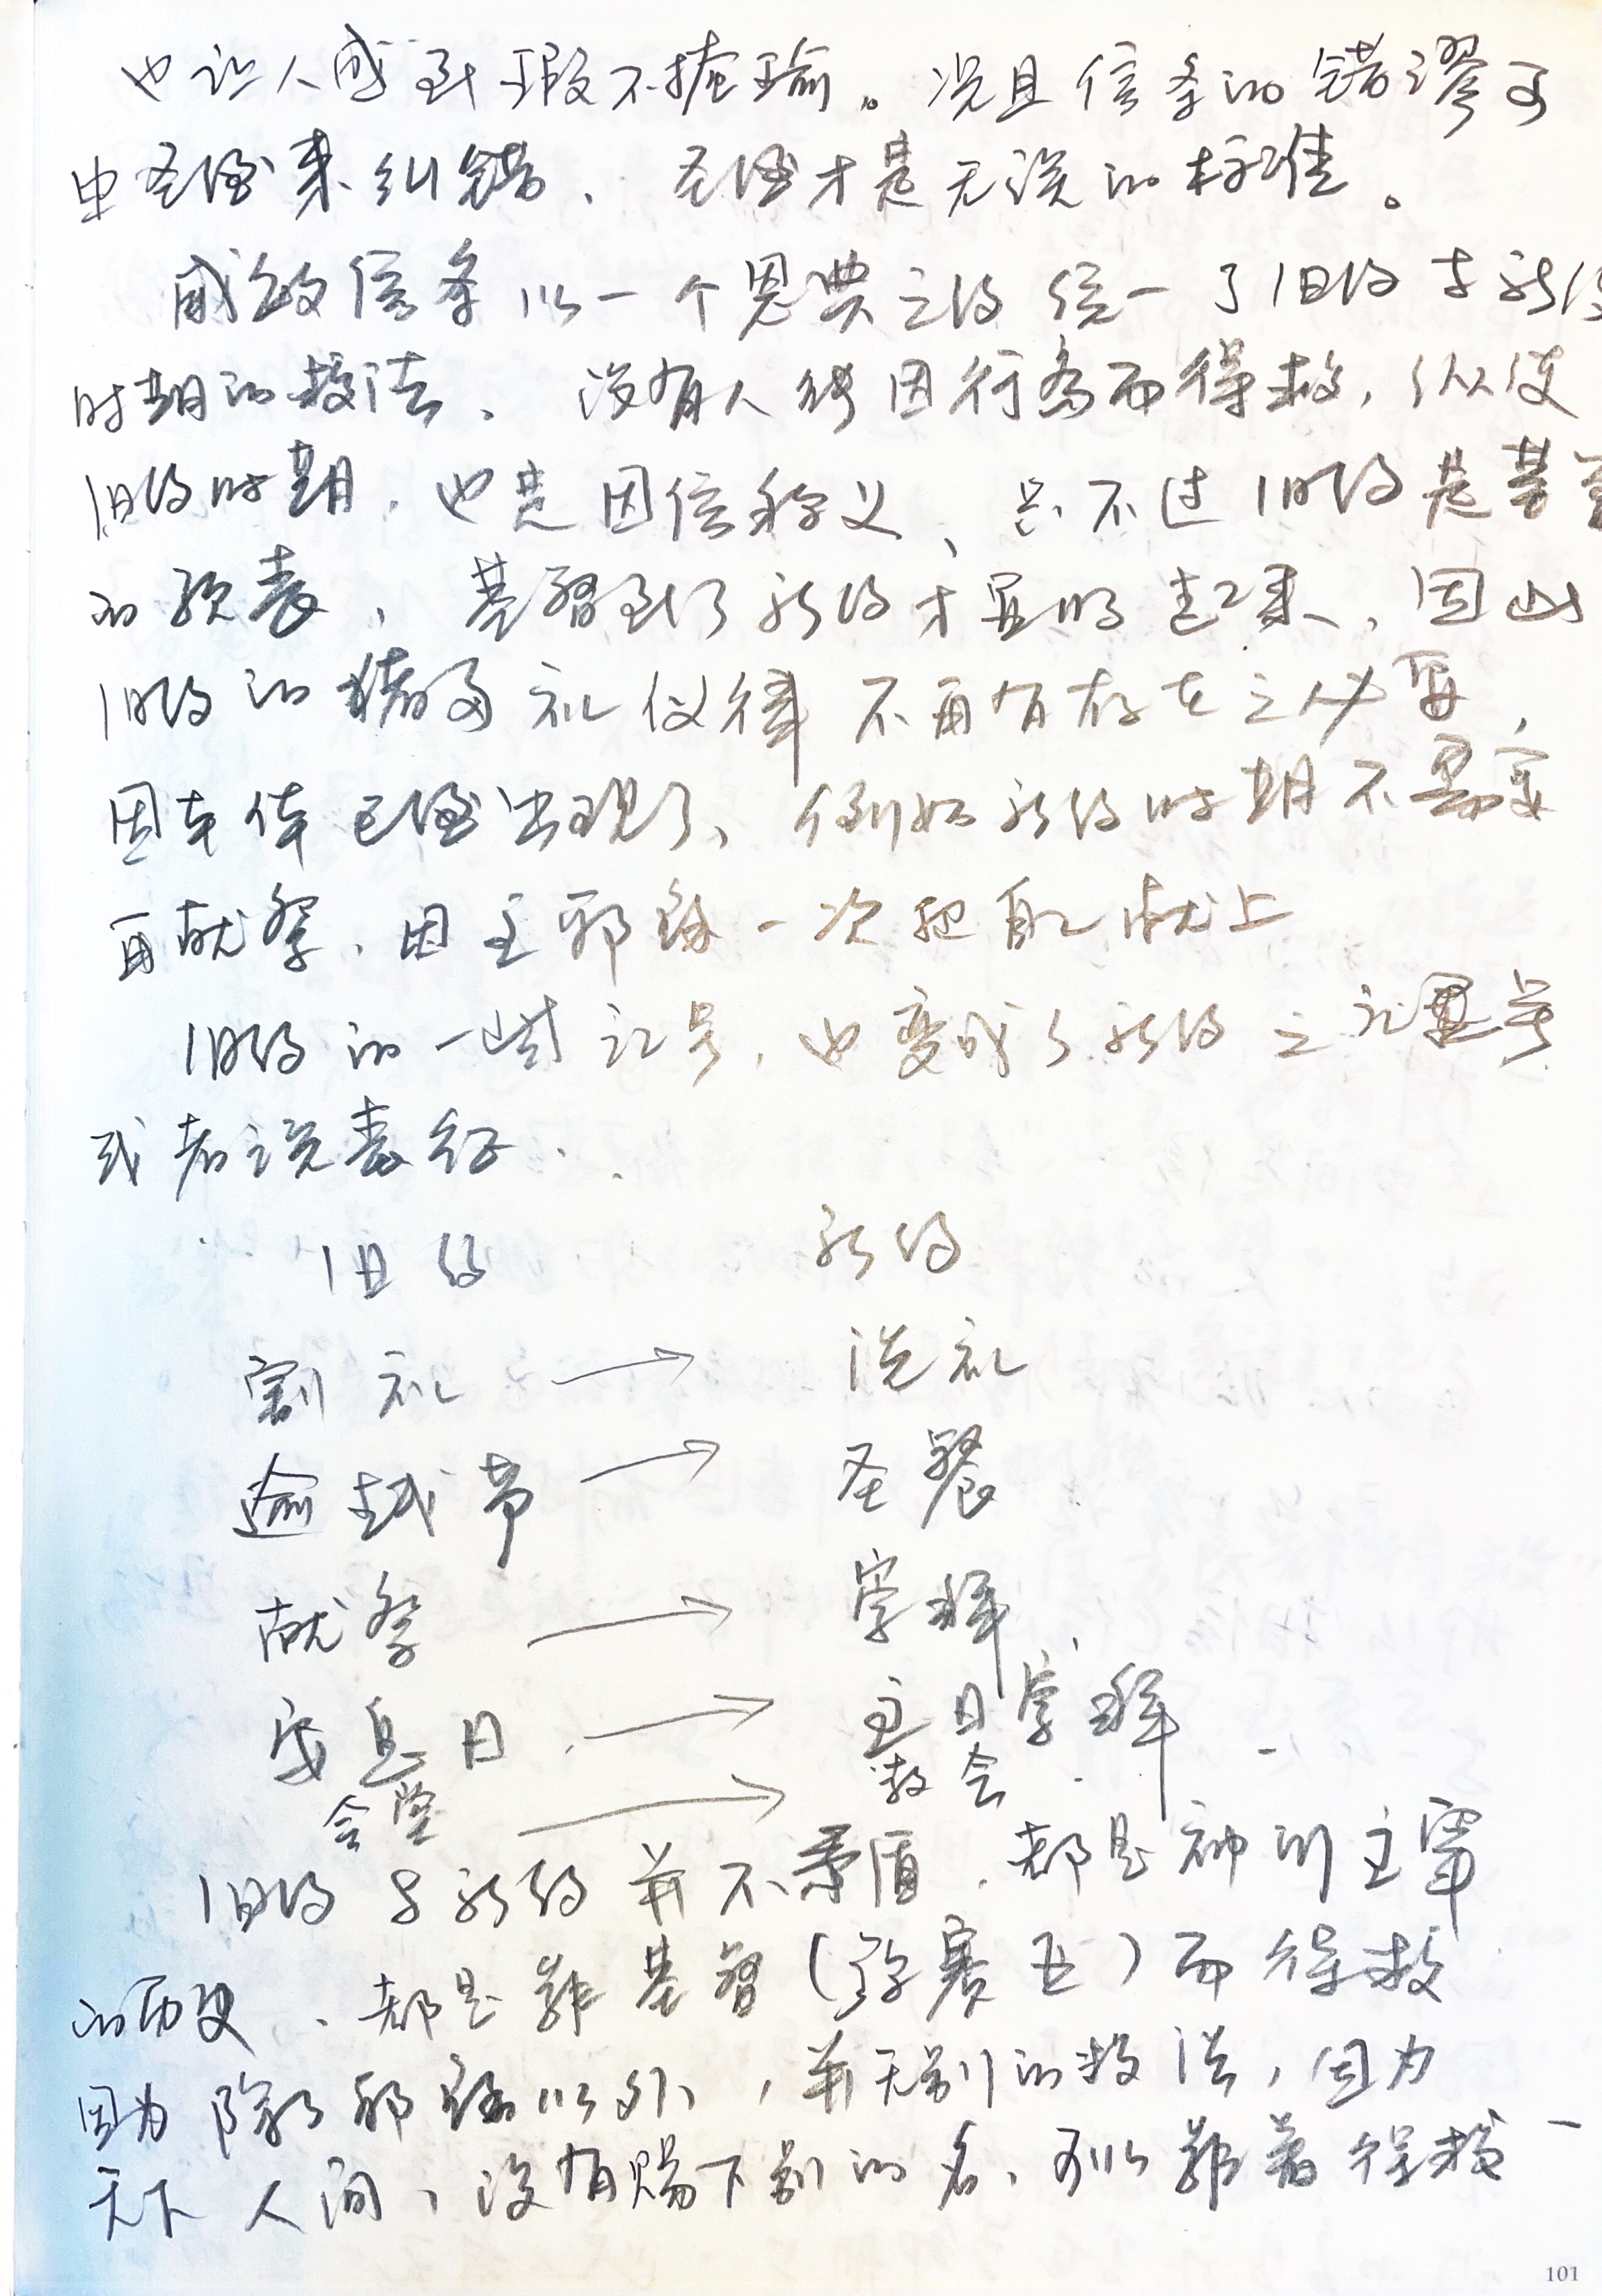 也让人感到瑕不掩瑜。况且信条的错谬可
由圣经来纠错、圣经才是无误的标准。
威敏信条以一个恩典之约统一了旧约与新约
时期的救法、没有人能因行为而得救，纵使
旧约时期，也是因信称义、只不过旧约是基督
的预表，基督到了新约才显明起来，因此
旧约的诸多礼仪律不再有存在之必要，
因本体已经出现了、例如新约时期不需要
再献祭、因主耶稣一次把自己献上
旧约的一些记号，也变成了新约之记号
或者说表征.
旧约 新约
割礼 → 洗礼
逾越节 → 圣餐
献祭 → 崇拜
安息日 → 主日崇拜
会堂 → 教会
旧约与新约并不矛盾，都是神所主宰
的历史、都是靠基督(弥赛亚)而得救
因为除了耶稣以外，并无别的救法，因为
天下人间、没有赐下别的名、可以靠着得救
101